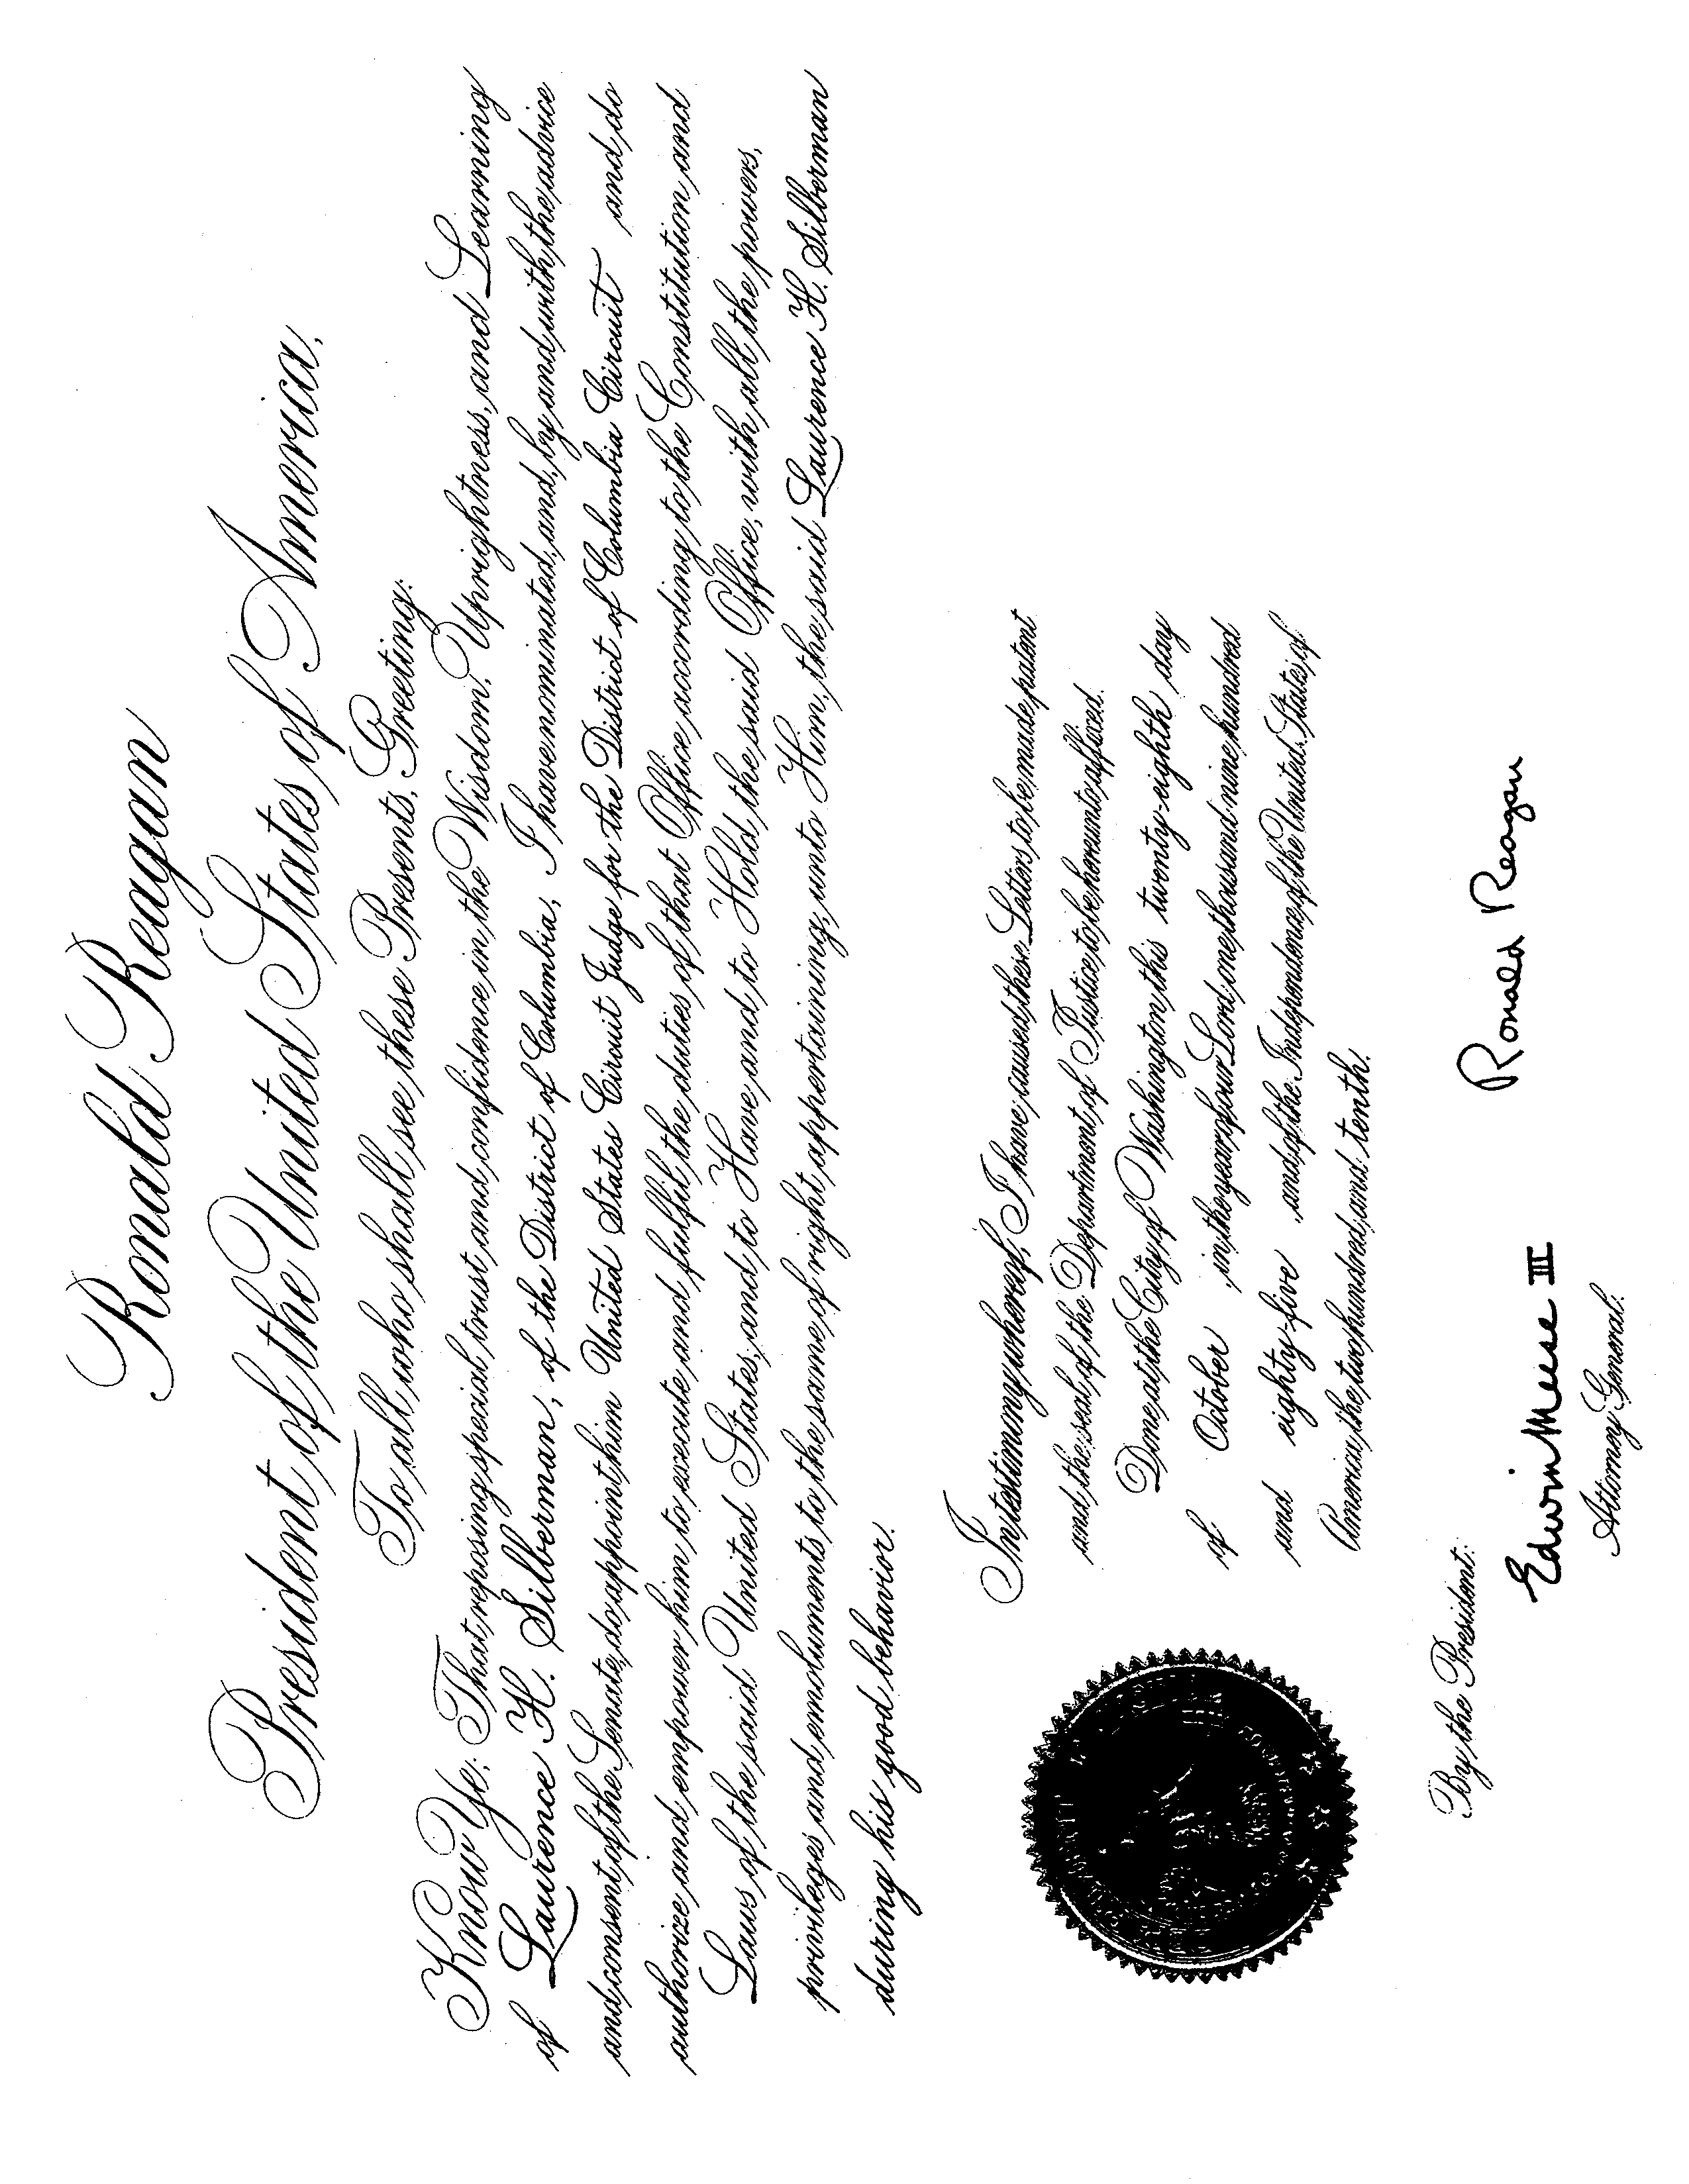 Ronald Reagan
President of the United States of America,
To all who shall see these Presents, Greeting:
Know Ye; That reposing special trust and confidence in the Wisdom, Uprightness, and Learning
of Laurence H. Silberman, of the District of Columbia, I have nominated, and, by and with the advice
and consent of the Senate, do appoint him United States Circuit Judge for the District of Columbia Circuit and do
authorize and empower him to execute and fulfil the duties of that Office according to the Constitution and
Laws of the said United States, and to Have and to Hold the said Office, with all the powers,
privileges and emoluments to the same of right appertaining, unto Him, the said Laurence H. Silberman
during his good behavior.
In testimony whereof, I have caused these Letters to be made patent
and the seal of the Department of Justice to be hereunto affixed.
Done at the City of Washington this twenty-eighth day
of October in the year of our Lord one thousand nine hundred
and eighty-five and of the Independence of the United States of
America the two hundred and tenth.
By the President:
Ronald Reagan
Edwin Meese III
Attorney General.